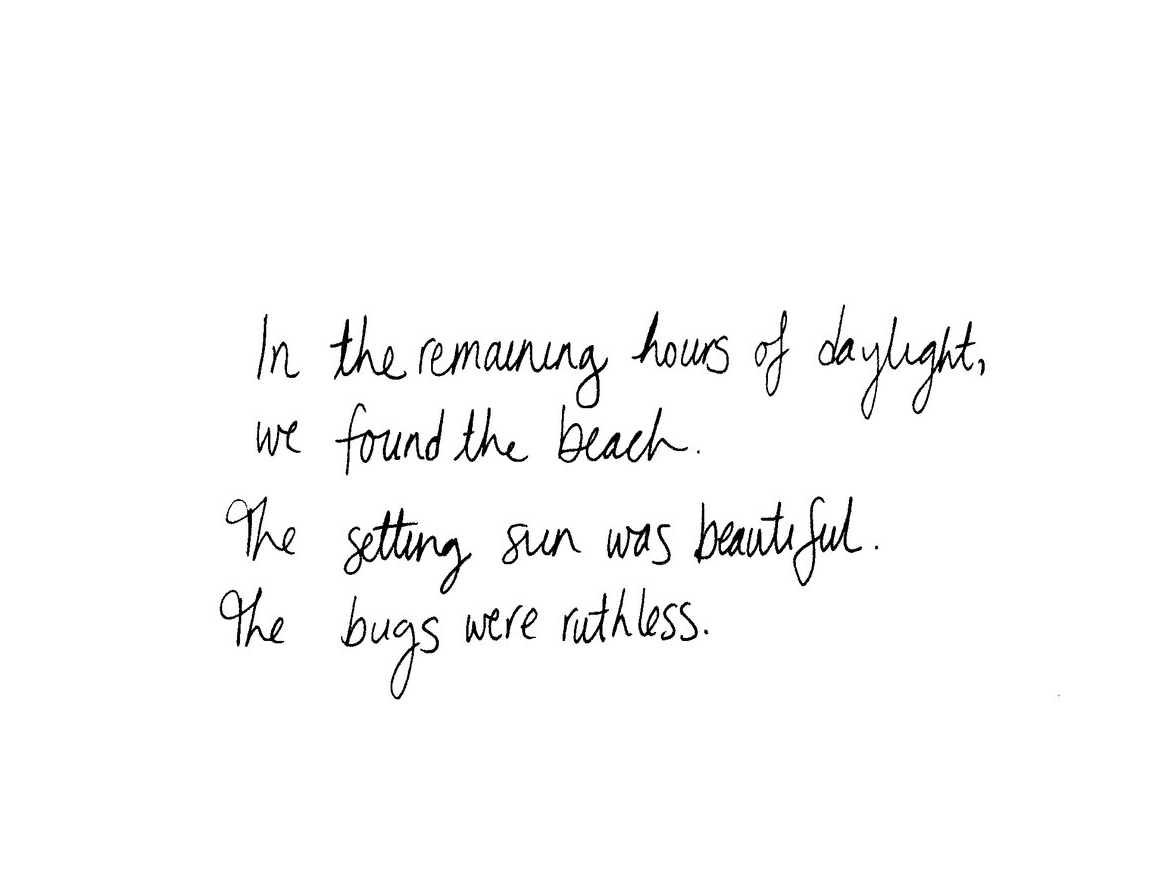 In the remaining hours of daylight,
we found the beach.
The setting sun was beautiful.
The bugs were ruthless.